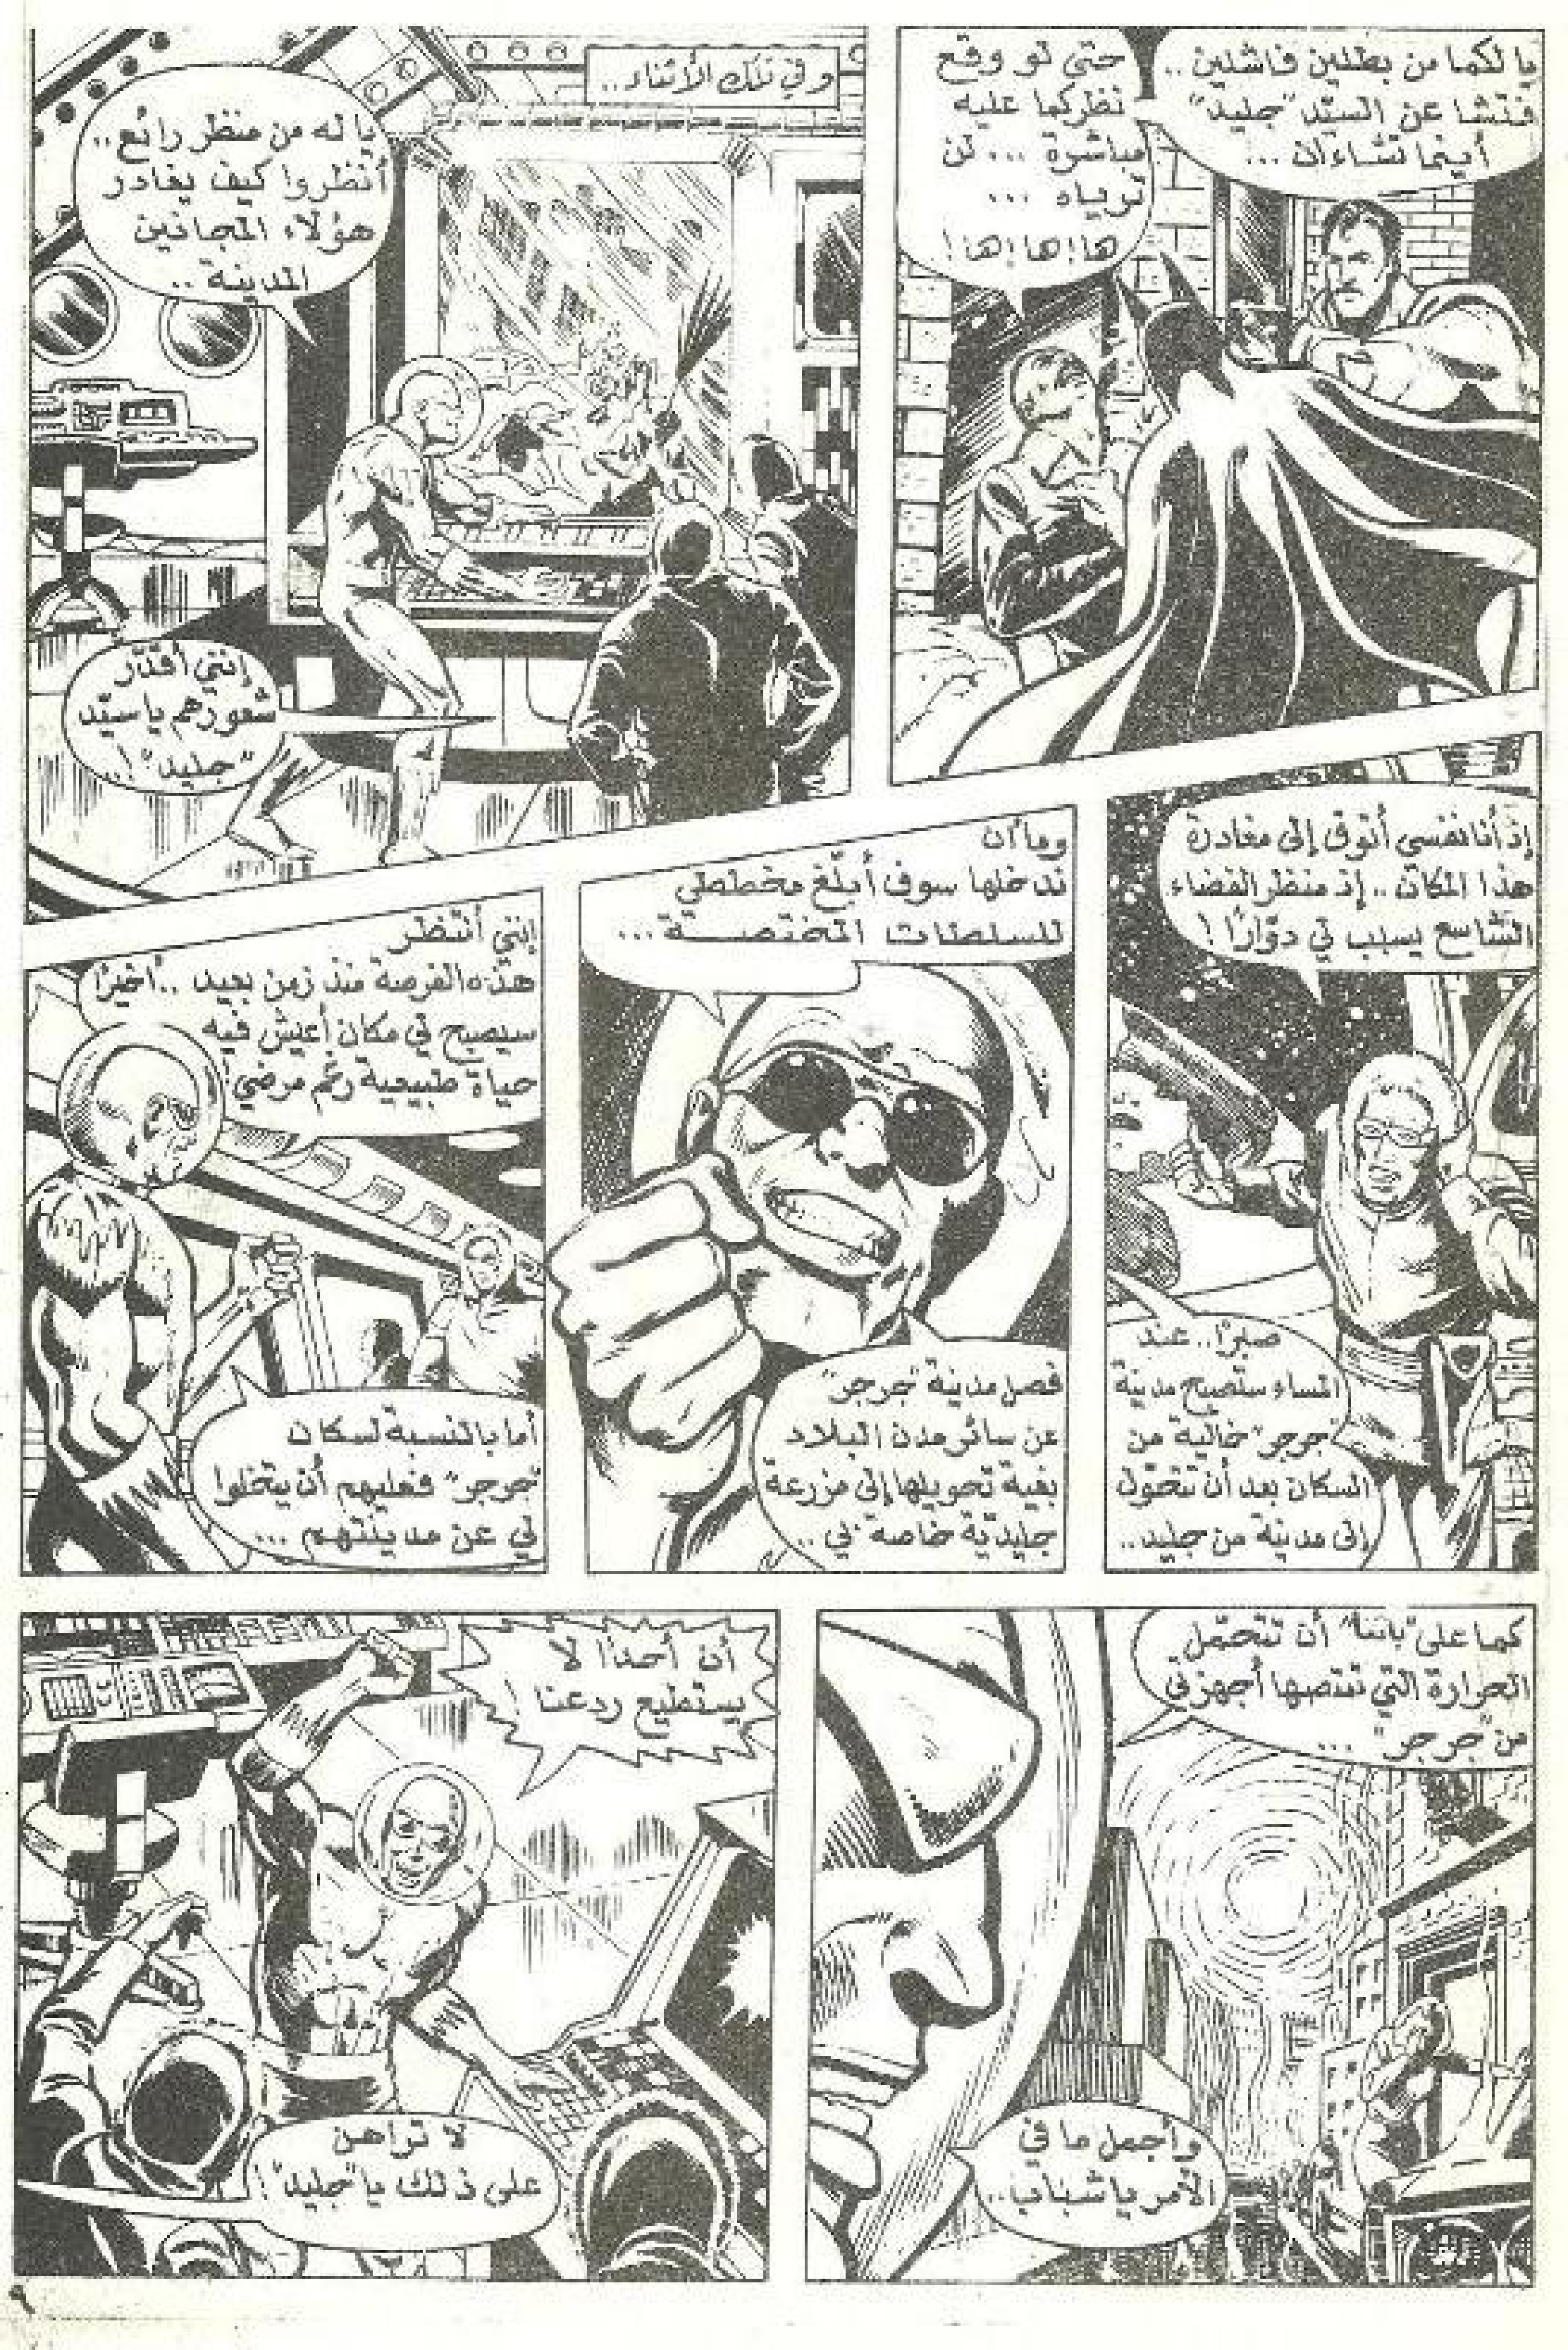 يا لكما من بطلين فاشلين ..
فتشا عن السيّد "جليد"
أينما تشاءان ...
حتى لو وقع
نظركما عليه
مباشرة ... لن
ترياه ...
ها! ها! ها!
وفي تلك الأثناء ..
يا له من منظر رائع ..
أنظروا كيف يغادر
هؤلاء المجانين
المدينة ..
إنني أقدّر
شعورهم يا سيّد
"جليد" !..
إذ أنا نفسي أتوق إلى مغادرة
هذا المكان .. إذ منظر الفضاء
الشاسع يسبب لي دوّارًا !
صبرًا .. عند
المساء ستصبح مدينة
"جرجر" خالية من
السكان بعد أن تتحوّل
إلى مدينة من جليد ..
وما أن
ندخلها سوف أبلّغ مخططي
للسلطات المختصـة ...
فصل مدينة "جرجر"
عن سائر مدن البلاد
بغية تحويلها إلى مزرعة
جليديّة خاصة بي ..
إنني أنتظر
هذه الفرصة منذ زمن بعيد .. أخيرًا
سيصبح لي مكان أعيش فيه
حياة طبيعية رغم مرضي !
أما بالنسبة لسكان
"جرجر" فعليهم أن يتخلوا
لي عن مدينتهم ...
كما على "باتنة" أن تتحمّل
الحرارة التي تمتصها أجهزتي
من "جرجر" ...
وأجمل ما في
الأمر يا شباب ..
أن أحدًا لا
يستطيع ردعنا !
لا تراهن
على ذلك يا "جليد" !
٩